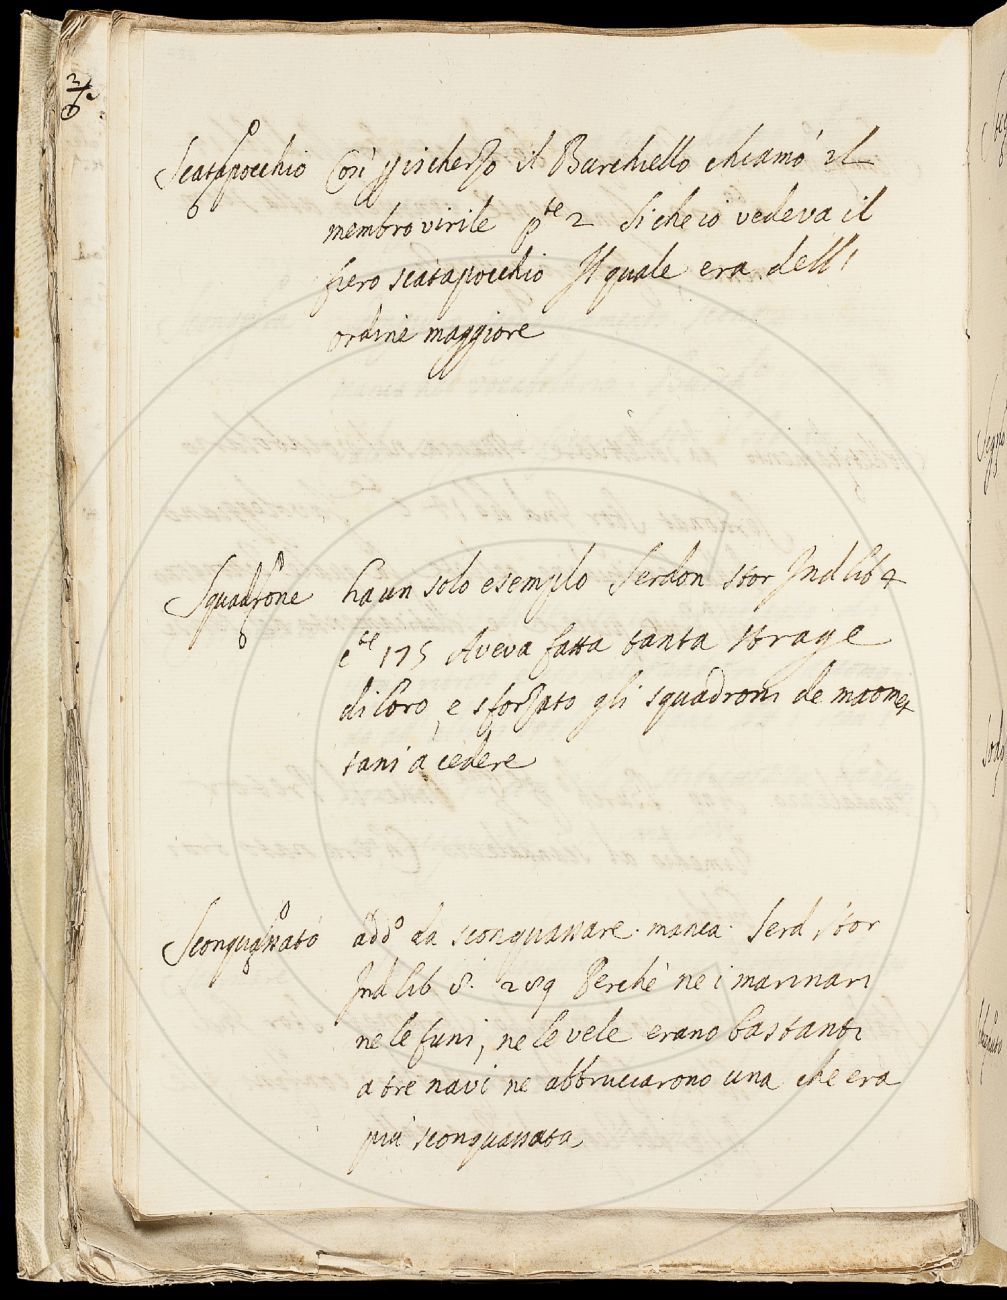 Scatapocchio Così p ischerzo il Burchiello chiamò il
membro virile pte 2 Si che io vedeva il
fiero scatapocchio Il quale era dell'
ordine maggiore
Squadrone ha un solo esemplo Serdon stor Ind lib 4
cte 175 Aveva fatta tanta strage
di loro, e sforzato gli squadroni de maomet
tani à cedere
Sconquassato add° da sconquassare. manca. Serd. stor
Ind lib 8. 289 Perchè ne i marinari
ne le funi, ne le vele erano bastanti
a tre navi ne abbruciarono una che era
più sconquassata